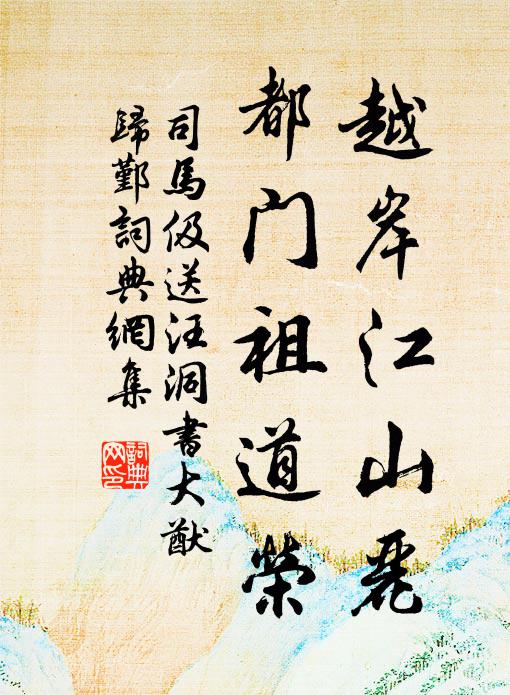 越岸江山麗
都門祖道榮
司馬伋送汪洞書大猷
歸鄞詞典網集
詞典网印